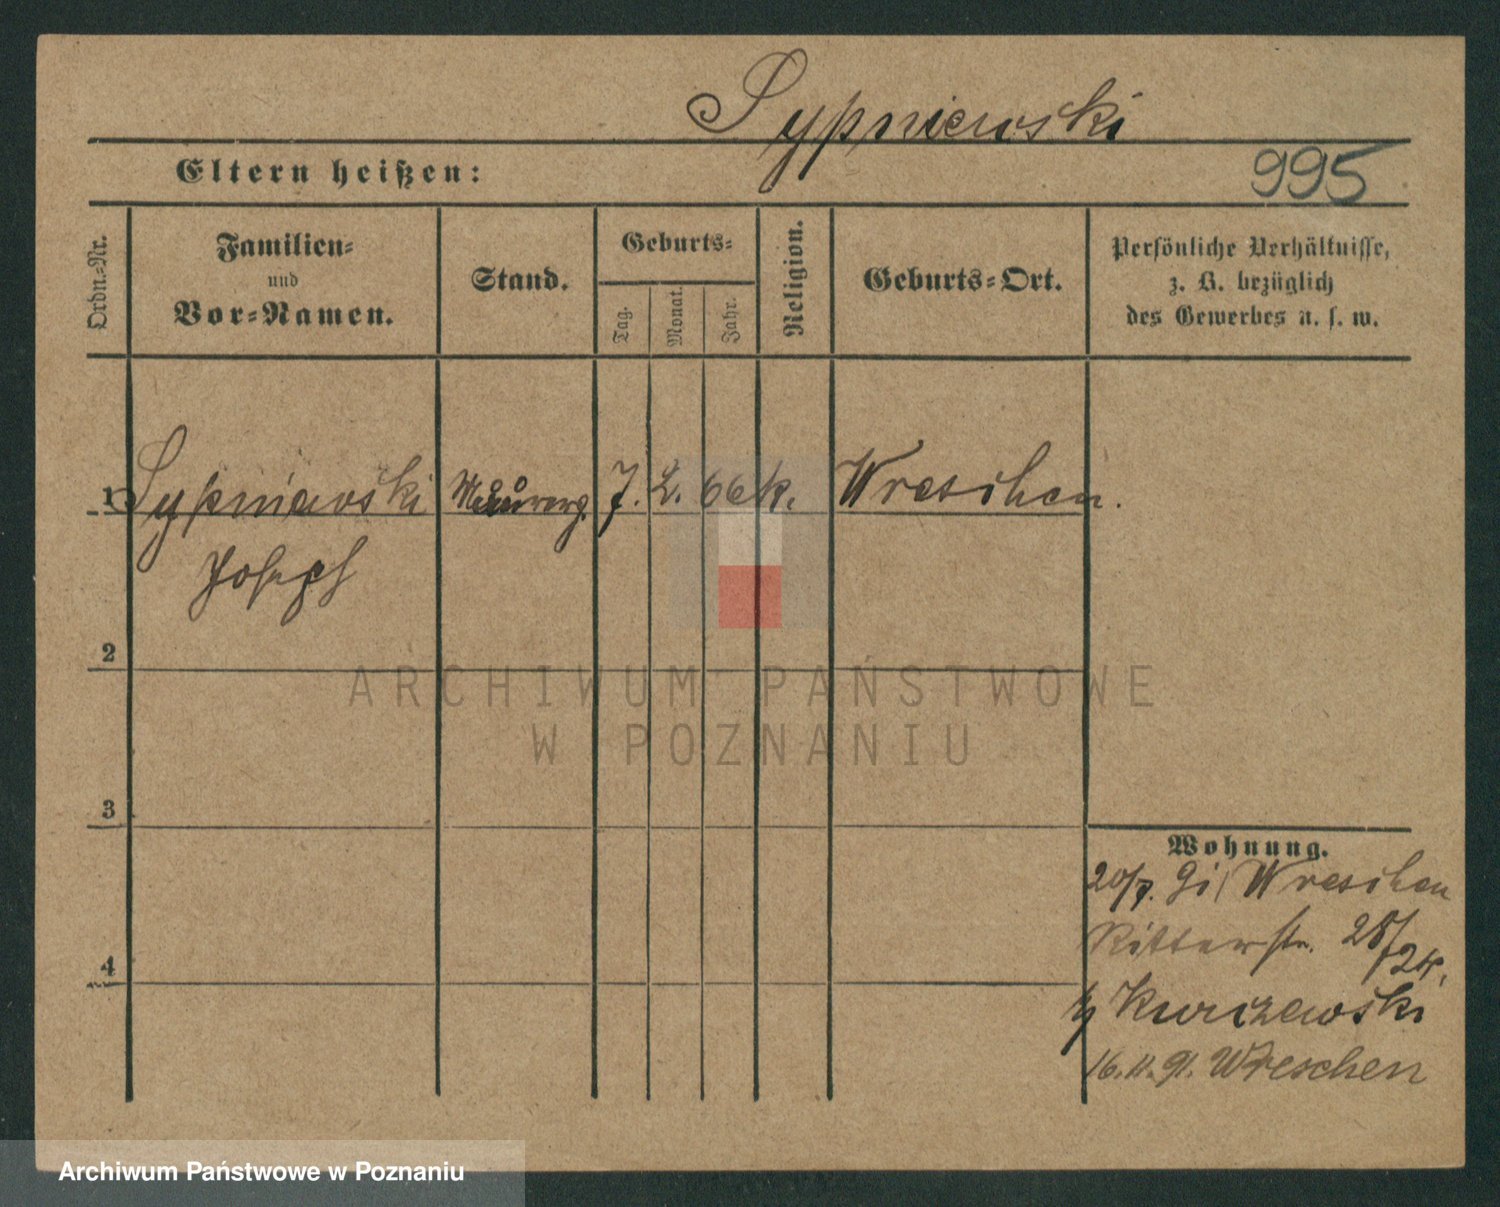 Sypniewski
Eltern heißen:
995
Ordn.-Nr.
Familien-
und
Vor-Namen.
Stand.
Geburts-
Tag.
Monat.
Jahr.
Religion.
Geburts-Ort.
Persönliche Verhältnisse,
z. B. bezüglich
des Gewerbes u. s. w.
1 Sypniewski Maurerg. 7. 2. 66 k. Wreschen.
Joseph
2
3
4
Wohnung.
20/7. 91 Wreschen
Ritterstr. 28/24.
Kurczewski
16.11.91. Wreschen
ARCHIWUM PAŃSTWOWE
W POZNANIU
Archiwum Państwowe w Poznaniu